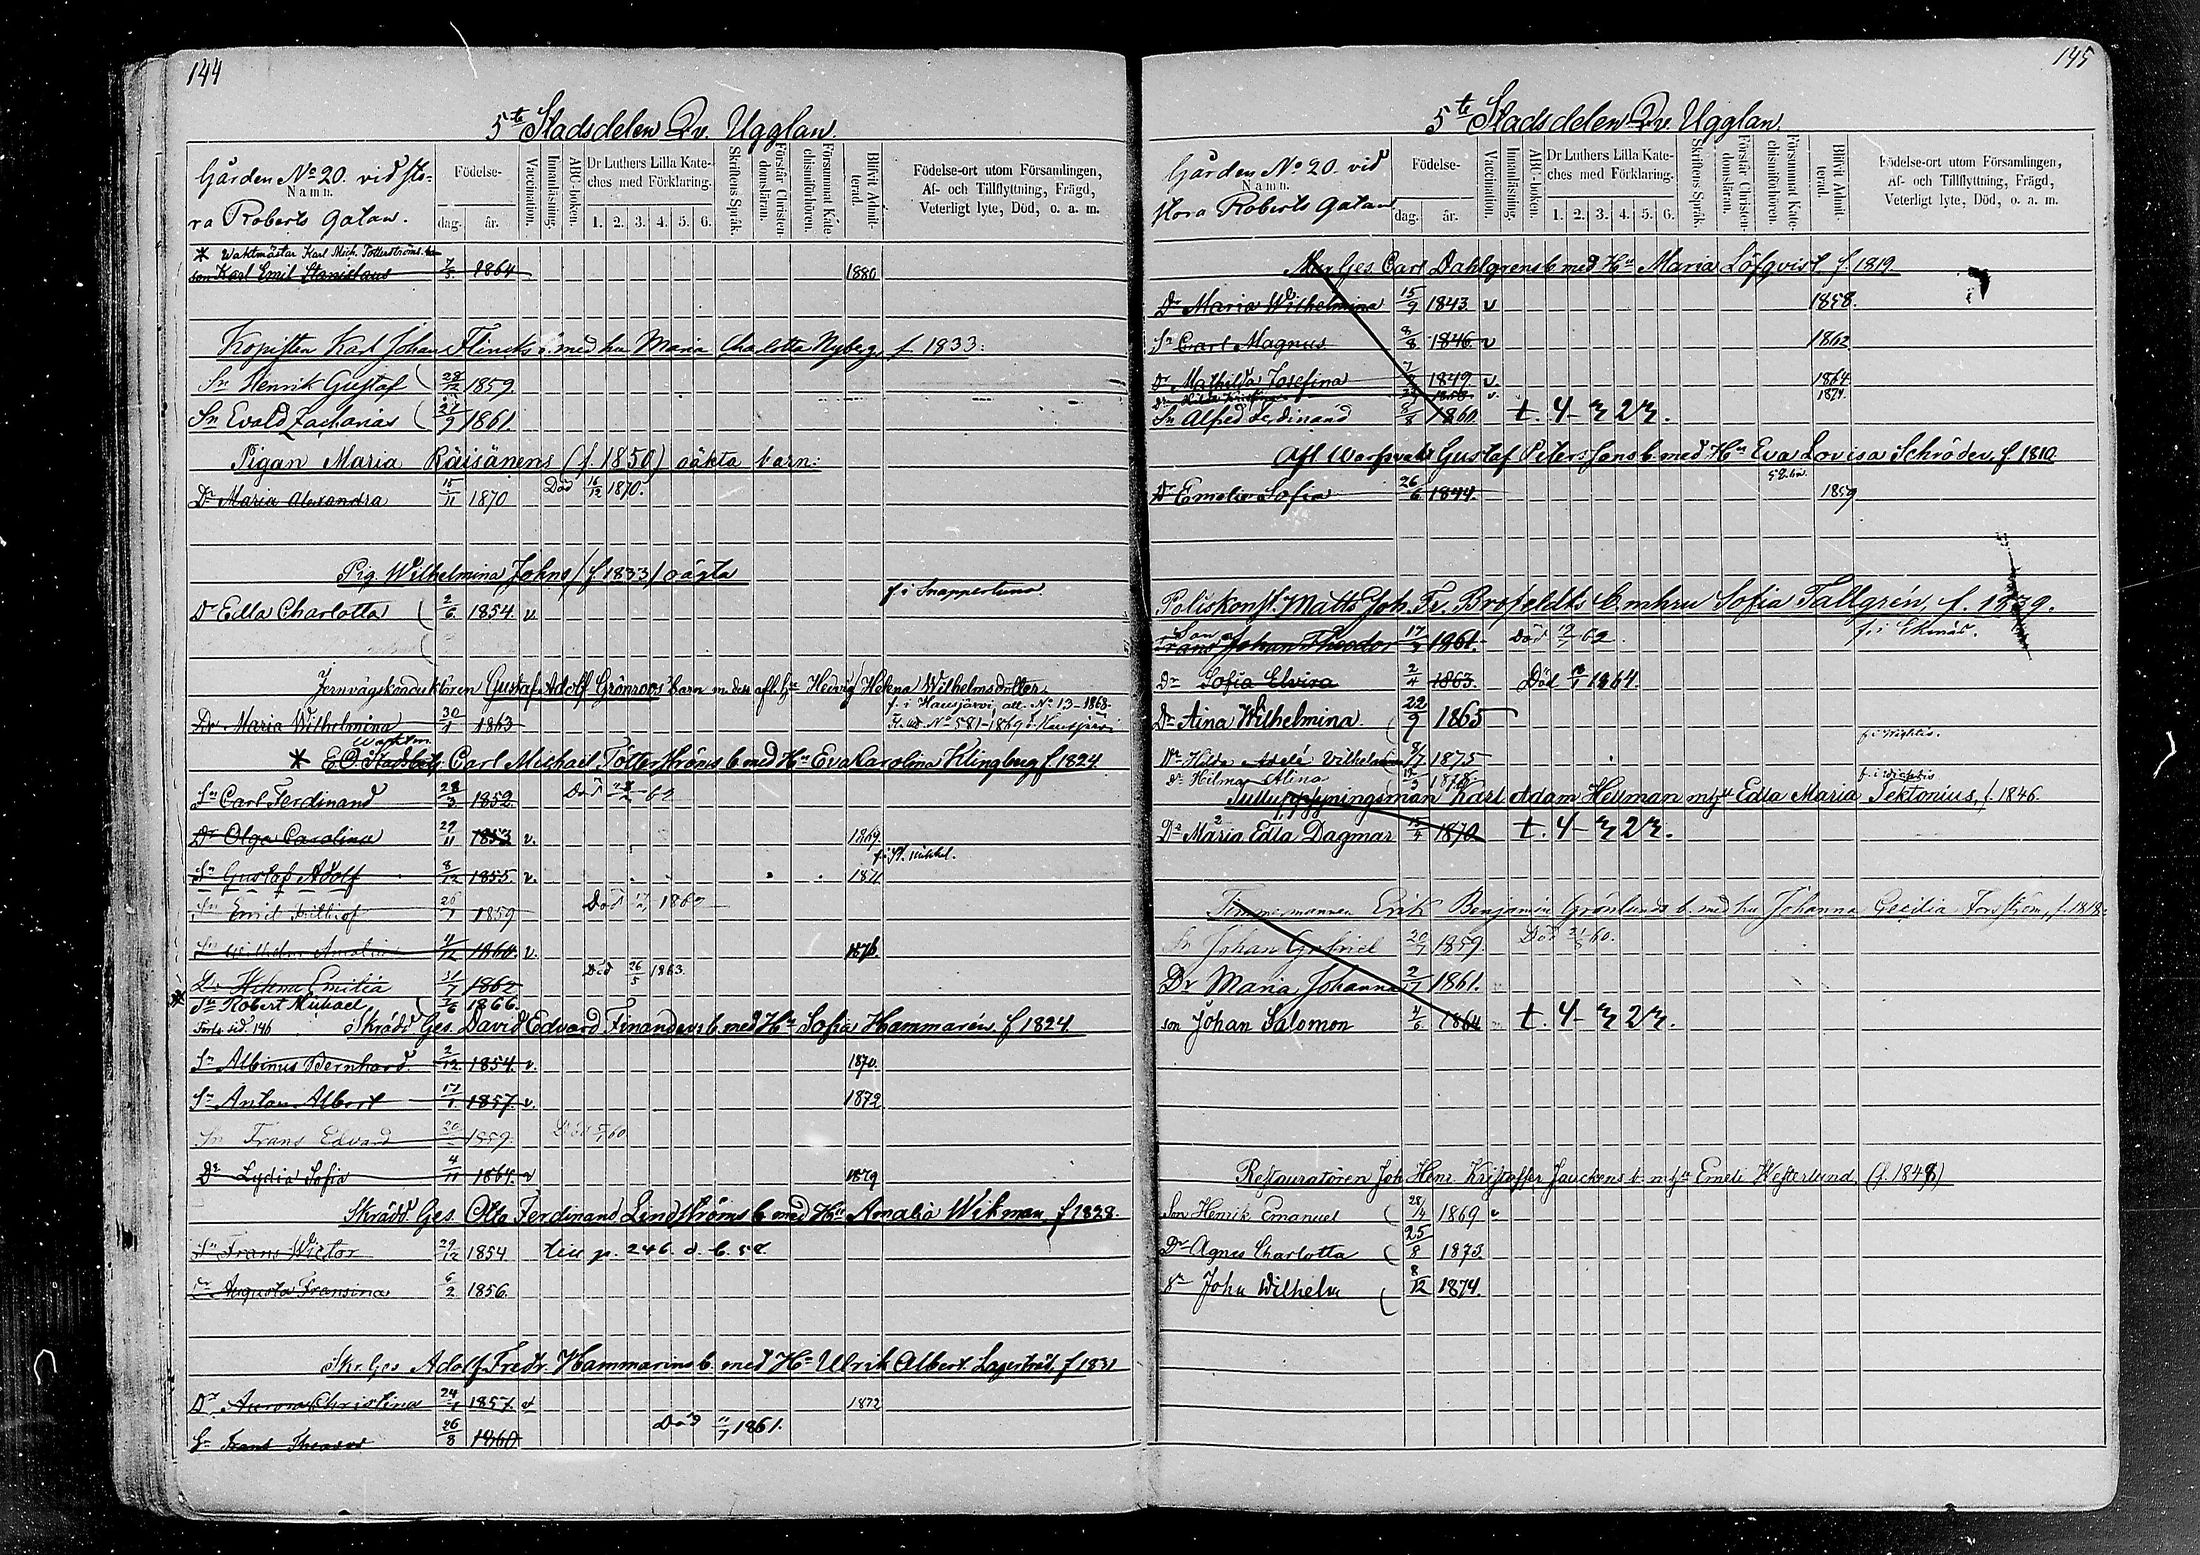 144
5te Stadsdelen Qv. Ugglan.
Gården No 20. vid sto-
Namn.
ra Roberts gatan.
Födelse-
dag. år.
Vaccination.
Innanläsning.
ABC-boken.
Dr Luthers Lilla Kate-
ches med Förklaring.
1. 2. 3. 4. 5. 6.
Skriftens Språk.
Förstår Christen-
domsläran.
Försummat Kate-
chismiförhören.
Blifvit Admit-
terad.
Födelse-ort utom Församlingen,
Af- och Tillflyttning, Frägd,
Veterligt lyte, Död, o. a. m.
* Waktmästar Karl Mich. Totterströms
son Karl Emil Stanislaus 7/5 1864 1880
Kopisten Karl Johan Flincks b. med hu Maria Charlotta Nyberg f. 1833.
Sn Henrik Gustaf 28/12 1859.
Sn Evald Zacharias 27/9 1861.
Pigan Maria Räisänens (f. 1850) oäkta barn:
Dr Maria Alexandra 15/11 1870 Död 16/12 1870.
Pig. Wilhelmina Johns / f 1833 / oägta
f. i Snappertuna.
Dr Edla Charlotta 2/6. 1854. v.
Jernvägskonduktören Gustaf Adolf Grönroos barn m. dess afl. hu Hedvig Helena Wilhelmsdotter.
f. i Hausjärvi, att. No 13-1868
Dr Maria Wilhelmina 30/1 1863 No 581-1869 Hausjärvi
Waktm.
* E.O. Stadsbetj. Carl Michael Totterströms b. med Hu Eva Karolina Klingberg f. 1824.
Sn Carl Ferdinand 28/3 1852. Död 62
Dr Olga Carolina 29/11 1853 v. 1869.
f. i St. Mikkel.
Sn Gustaf Adolf 8/12 1855. v. 1871
Sn Emil Frithiof 1859 Död
1860. v. 1876.
Dr Hilma Emilia 31/7 1862 Död 26/5 1863.
* Sn Robert Michael 1866.
Forts. sid. 146 Skrädd. Ges. David Edvard Finanders b. med Hu Sofia Hammarén f 1824.
Sn Albinus Bernhard 2/12. 1854. v. 1870.
Sn Anton Albert 17/1 1857. v. 1872
Sn Frans Edvard 20 1859. Död 60
Dr Lydia Sofia 4/11 1864. v 1879
Skrädd. Ges. Otto Ferdinand Lindströms b. med Hu Amalia Wikman f 1828.
Sn Frans Wictor 29/12 1854 till p. 246. d. b. s.
Dr Augusta Fransina 6/2 1856.
Skr. Ges Adolf Fredr. Hammarins b. med Hu Ulrik Albert. Lagerstråt, f 1831
Dr Aurora Christina 24/1 1857. v 1872
Sn Frans Theodor 26/8 1860 Död 11/7 1861.
145
5te Stadsdelen Qv. Ugglan.
Gården No 20. vid
Namn.
stora Roberts gatan
Födelse-
dag. år.
Vaccination.
Innanläsning.
ABC-boken.
Dr Luthers Lilla Kate-
ches med Förklaring.
1. 2. 3. 4. 5. 6.
Skriftens Språk.
Förstår Christen-
domsläran.
Försummat Kate-
chismiförhören.
Blifvit Admit-
terad.
Födelse-ort utom Församlingen,
Af- och Tillflyttning, Frägd,
Veterligt lyte, Död, o. a. m.
Ges. Carl Dahlgrens b. med Hu Maria Löfqvist f. 1819.
Dr Maria Wilhelmina 15/9 1843. v 1858.
Sn Carl Magnus 8/8 1846. v 1862
Dr Mathilda Josefina 7 1849 v. 1864
Dr Hilda v. 1874
Sn Alfred Ferdinand 8/8 1860. t. 4
Afl. Gustaf Petersons b. med Hu Eva Lovisa Schröder, f 1810
Dr Emelie Sofia 26/6 1844. 1859
Poliskonst. Matts Joh. Fr. Brofeldts b. m hru Sofia Tallgrén, f. 1839.
f. i Ekenäs.
Frans Johan Theodor 17 1861. Död 62.
Dr Sofia Elvira 2/4 1863. Död 1864.
Dr Aina Wilhelmina. 22/9 1865
f. i Wichtis.
Dr Hilda Adelé Wilhelmina 8/7 1875
Dr Hilma Alina 1878 f. i Wichtis
Tulluppsyningsman Karl Adam Hellman m hu Edla Maria Tektonius, f. 1846.
Dr Maria Edla Dagmar 15/4 1870 t. 4
Timmermannen Erik Benjamin Grönlunds b. med hu Johanna Cecilia Forsström, f. 1818.
Sn Johan Gabriel 20/7 1859. Död 60.
Dr Maria Johanna 2 1861.
son Johan Salomon 4/6 1864 t. 4
Restauratören Joh. Henr. Kristoffer Jauckens b. m hu Emeli Westerlund, (f. 1848)
Son Henrik Emanuel 28/4 1869 v
Dr Agnes Charlotta 25/8 1873.
Sn John Wilhelm 8/12 1874.